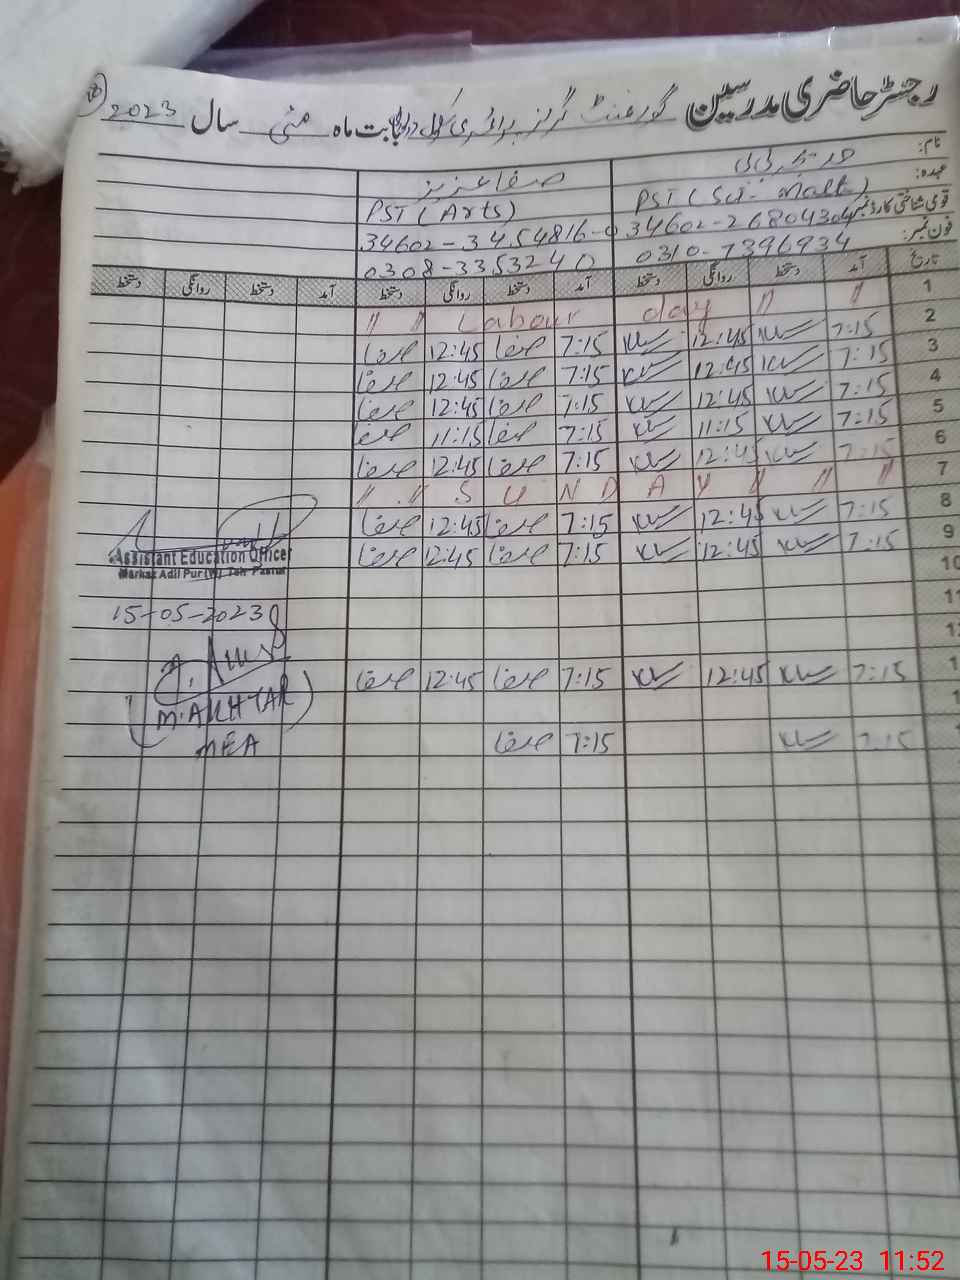 رجسٹر حاضری مدرسین گورنمنٹ گرلز پرائمری سکول بابت ماہ مئی سال 2023
نام: صفا عزیز
عہدہ: PST (Sci- Math) PST (Arts)
قومی شناختی کارڈ نمبر 34602-26804304 34602-3454816-0
فون نمبر: 0310-7396934 0308-3353240
تاریخ آمد دستخط روانگی دستخط آمد دستخط روانگی دستخط آمد دستخط روانگی دستخط
1 〃 〃 Labour day 〃 〃
2 7:15 12:45 7:15 صفا 12:45 صفا
3 7:15 12:45 7:15 صفا 12:45 صفا
4 7:15 12:45 7:15 صفا 12:45 صفا
5 7:15 11:15 7:15 صفا 11:15 صفا
6 7:15 12:45 7:15 صفا 12:45 صفا
7 〃 〃 S U N D A Y 〃 〃 〃
8 7:15 12:45 7:15 صفا 12:45 صفا
9 7:15 12:45 7:15 صفا 12:45 صفا
10
11
1
1 7:15 12:45 7:15 صفا 12:45 صفا
1
1 7:15 7:15 صفا
Assistant Education Officer
Markaz Adil Pur (W) Teh Pasrur
15-05-2023
(M. AKHTAR)
MEA
15-05-23 11:52